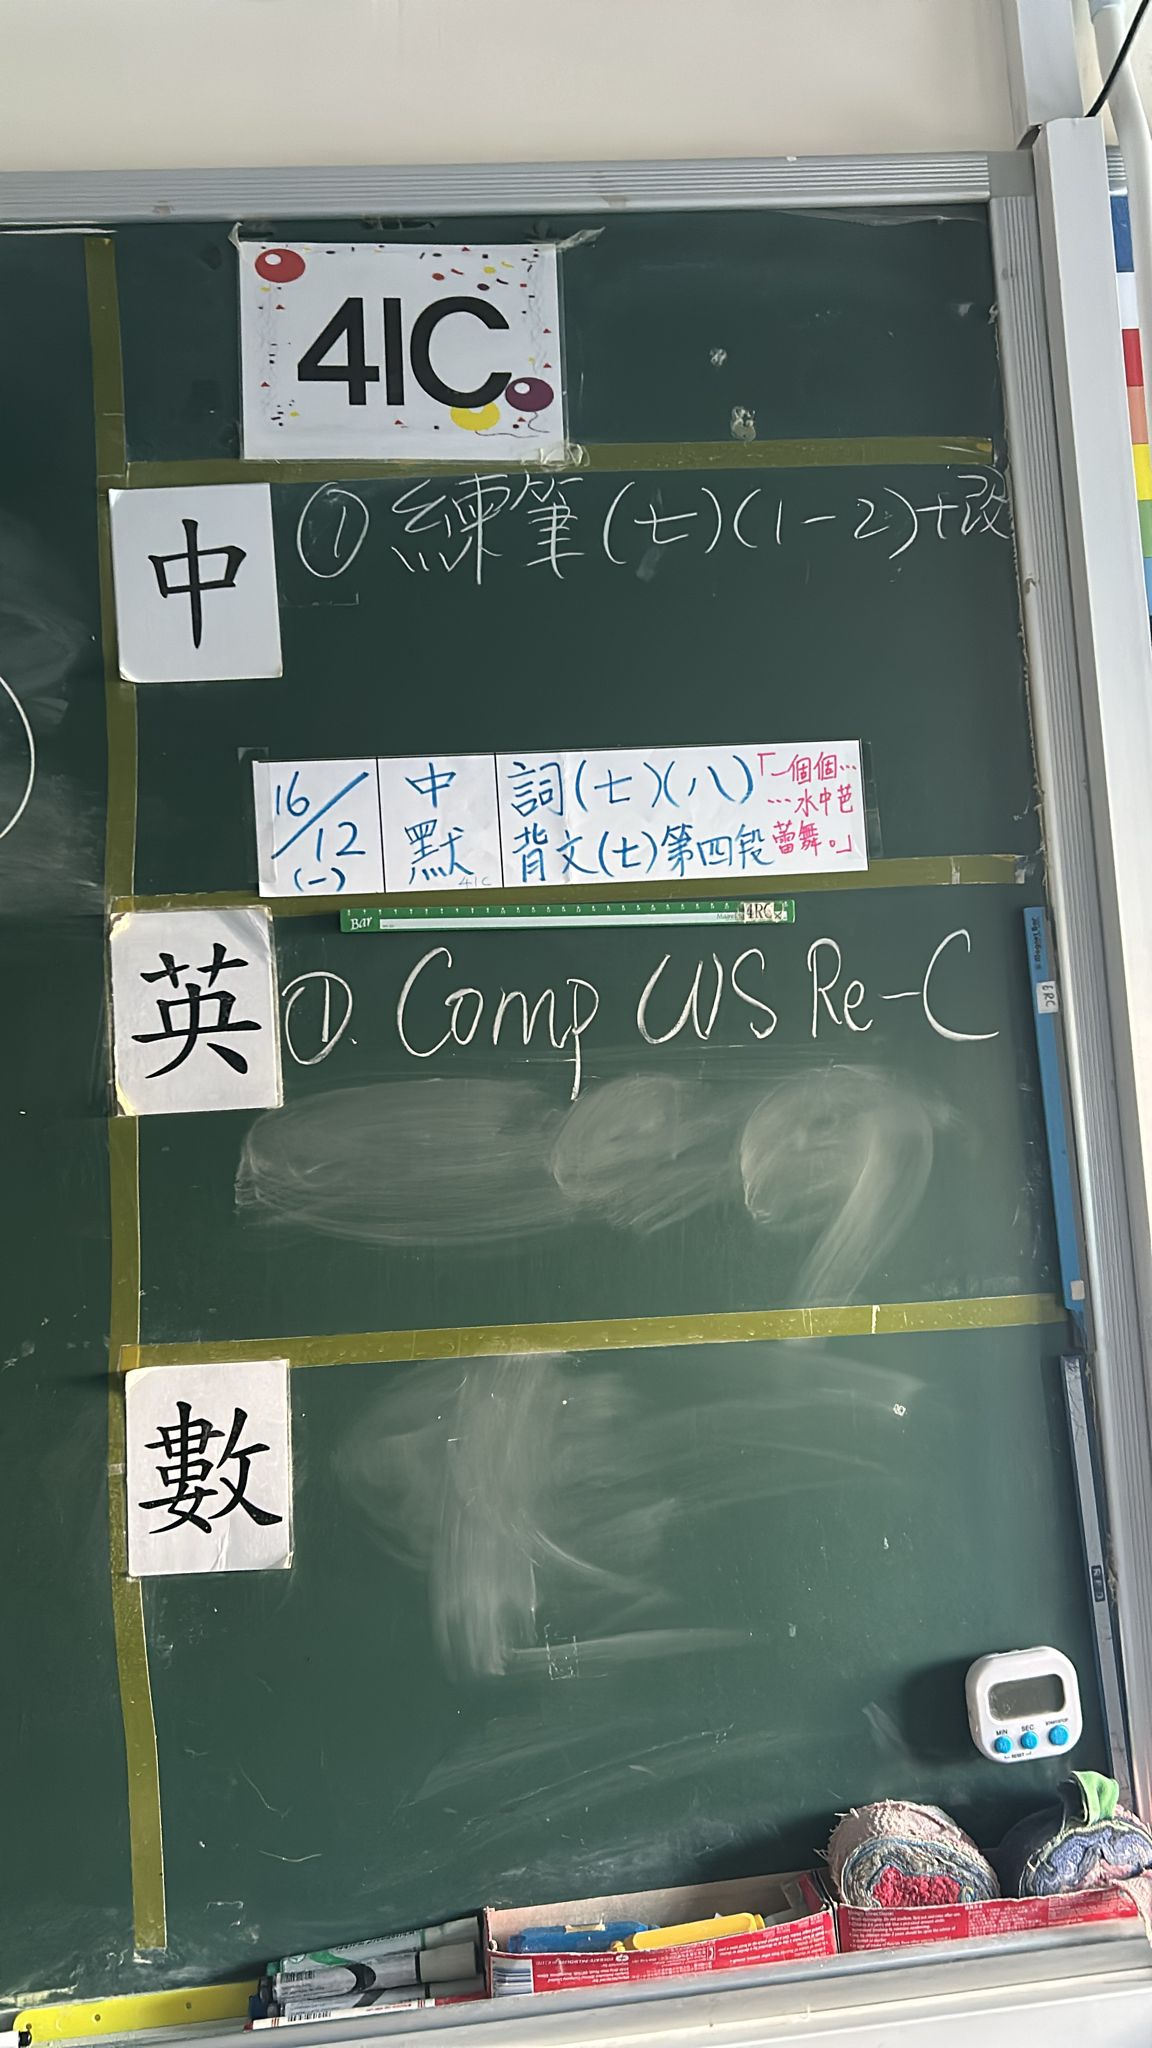 41C
中
① 練筆(七)(1-2)+改
16/12
(一)
中
默
41C
詞(七)(八)
背文(七)第四段
「一個個…
…水中芭
蕾舞。」
Bar
4RC
英
①. Comp WS Re-C
6RC
數
MIN
SEC
RESET